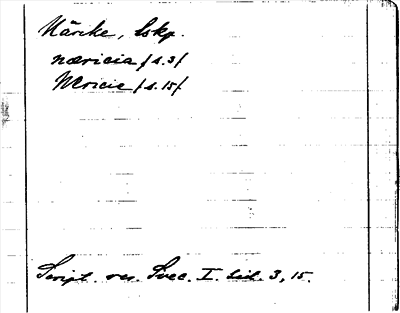 Närke, lskp.
næricia /s.3/
Nericie /s.15/
Script. rer. Svec. I. sid. 3, 15.